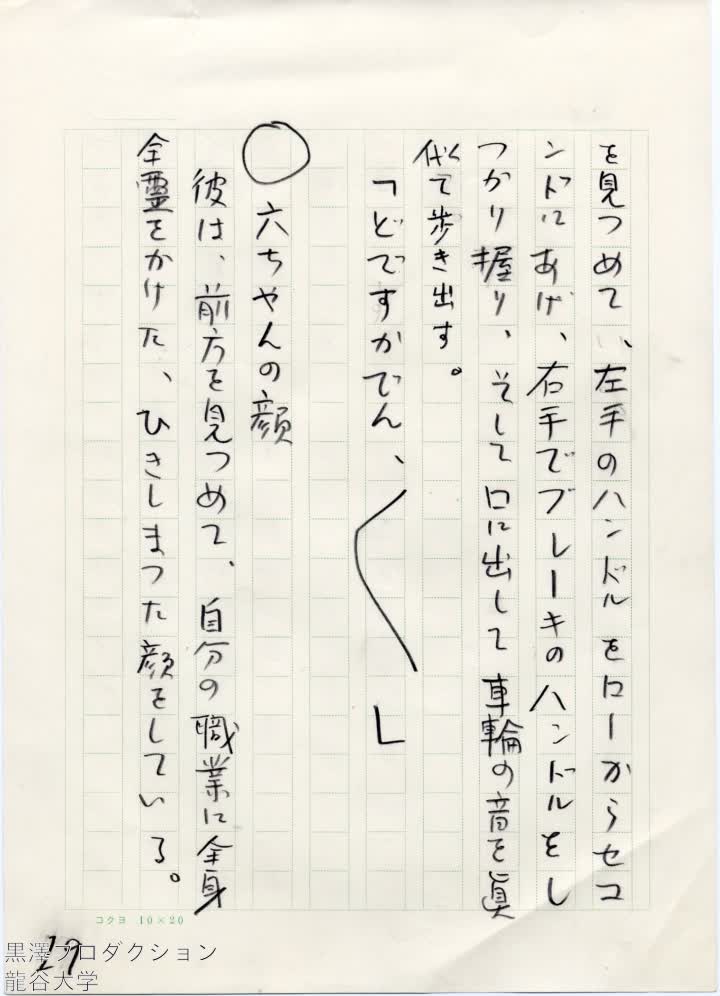 を見つめて、左手のハンドルをローからセコ
ンドにあげ、右手でブレーキのハンドルをし
つかり握り、そして口に出して車輪の音を眞
似て歩き出す。
「どですかでん、〱」
○六ちやんの顔
彼は、前方を見つめて、自分の職業に全身
全霊をかけた、ひきしまつた顔をしている。
コクヨ 10×20
29
黒澤プロダクション
龍谷大学